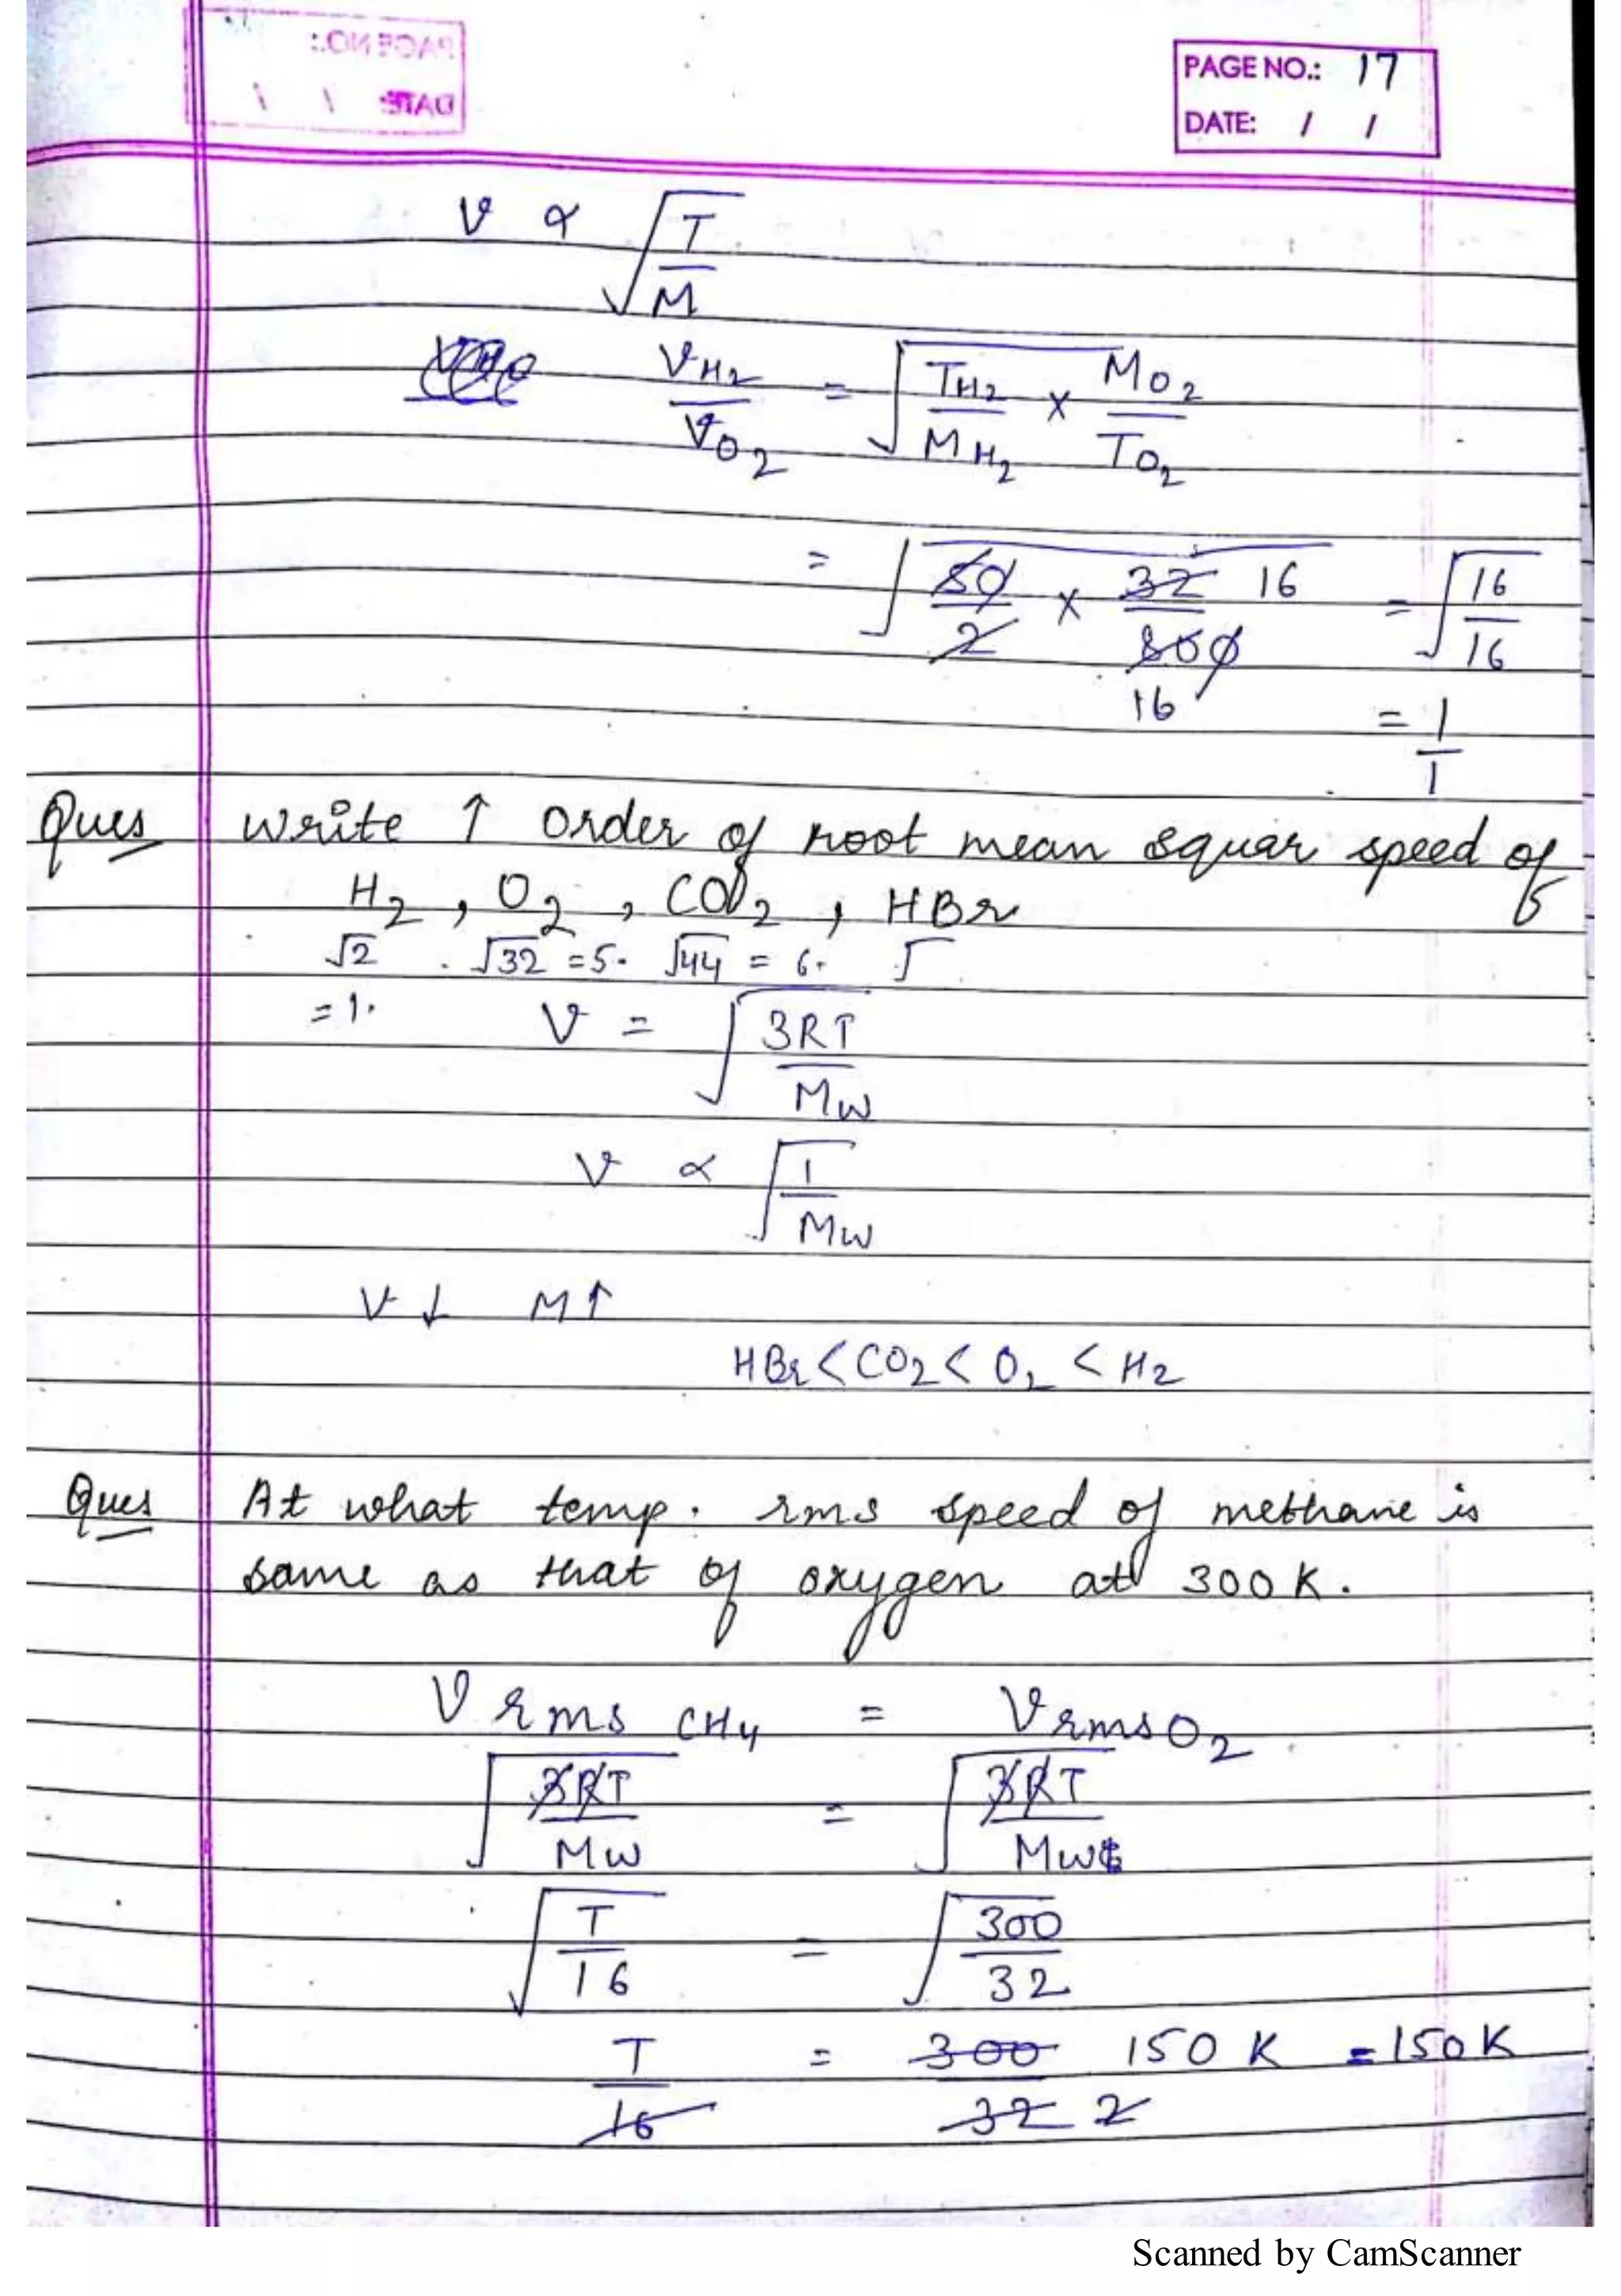 PAGE NO.:
DATE: / /
PAGE NO.: 17
DATE: / /
V ∝ √(T/M)
V H2 / V O2 = √(T H2 / M H2 × M O2 / T O2)
= √(50/2 × 32 16 / 800 16) = √(16/16)
= 1/1
Ques write ↑ order of root mean squar speed of
H2 , O2 , CO2 , HBr
√2 . √32 = 5. √44 = 6. √
= 1.
V = √(3RT/Mw)
V ∝ √(1/Mw)
V ↓ M ↑
HBr < CO2 < O2 < H2
Ques At what temp. rms speed of methane is
same as that of oxygen at 300 K.
V rms CH4 = V rms O2
√(3RT/Mw) = √(3RT/Mw)
√(T/16) = √(300/32)
T/16 = 300/32 2 150 K = 150 K
Scanned by CamScanner